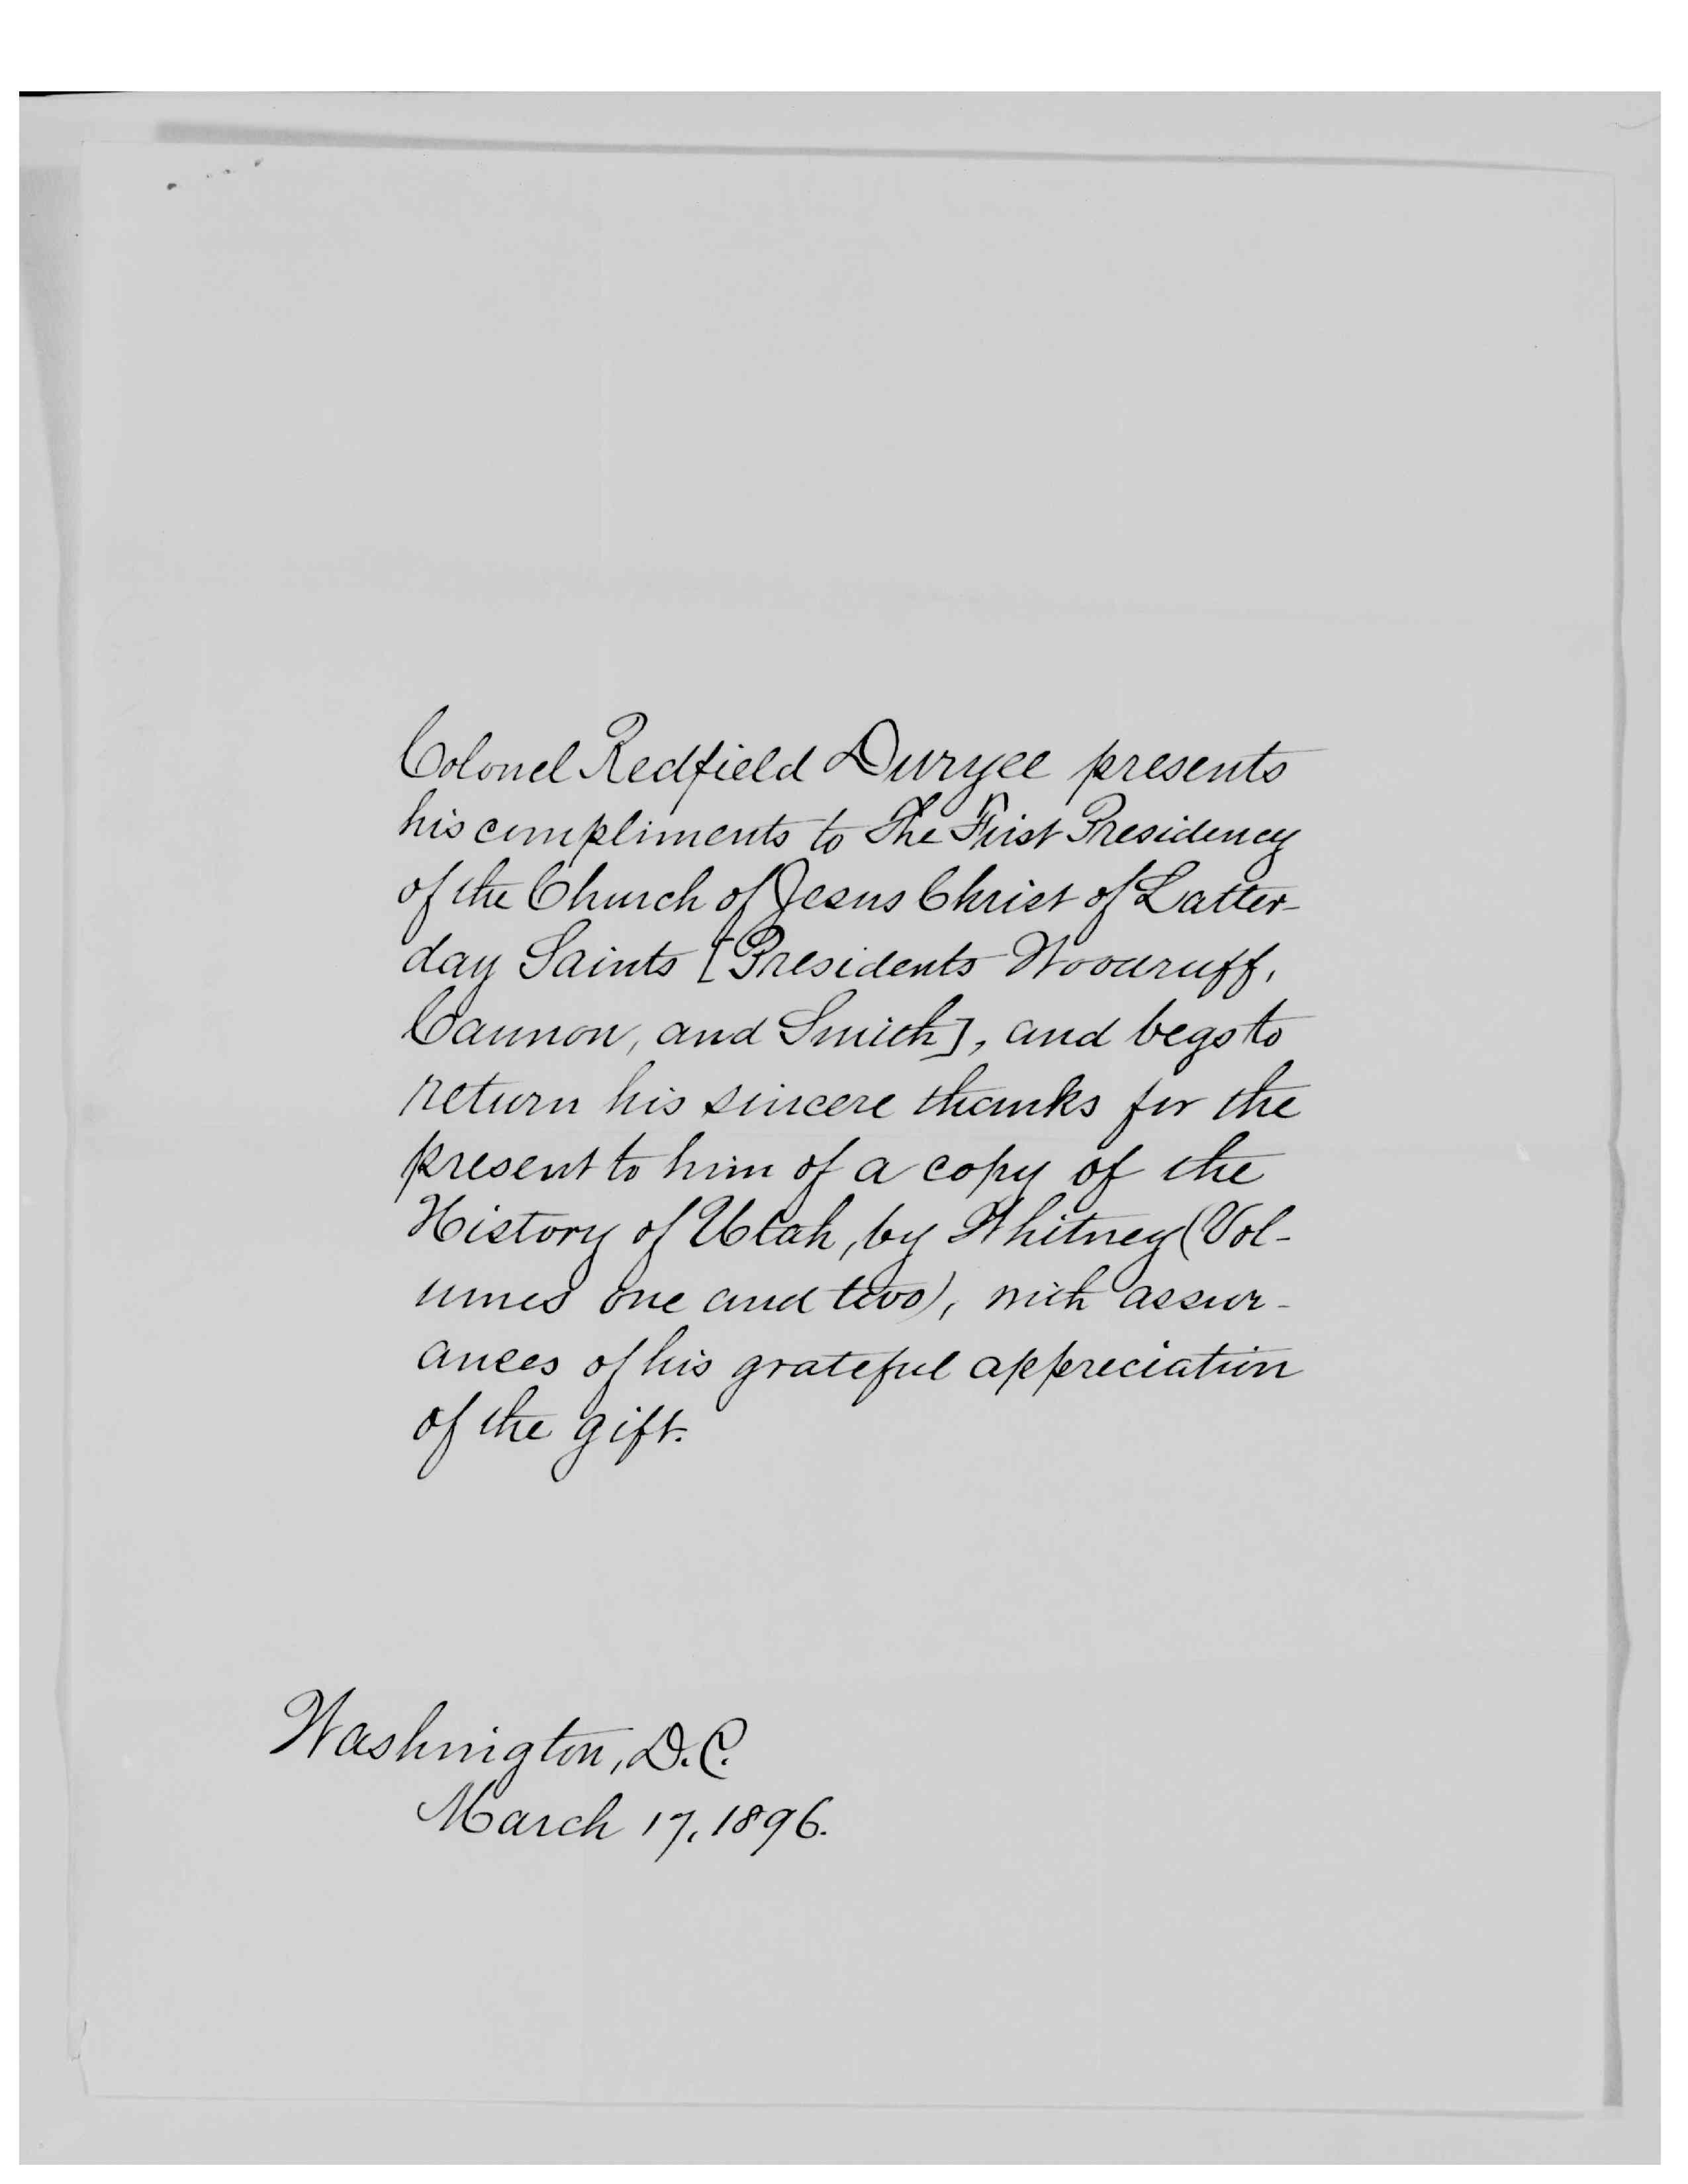 Colonel Redfield Duryee presents
his compliments to The First Presidency
of the Church of Jesus Christ of Latter-
day Saints [Presidents Woodruff,
Cannon, and Smith], and begs to
return his sincere thanks for the
present to him of a copy of the
History of Utah, by Whitney (Vol-
umes one and two), with assur-
ances of his grateful appreciation
of the gift.
Washington, D.C.
March 17, 1896.